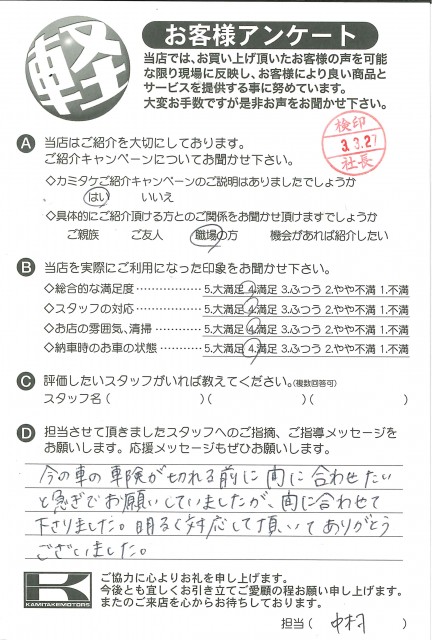 軽
お客様アンケート
当店では、お買い上げ頂いたお客様の声を可能
な限り現場に反映し、お客様により良い商品と
サービスを提供する事に努めています。
大変お手数ですが是非お声をお聞かせ下さい。
検印
3.3.27
社長
A 当店はご紹介を大切にしております。
ご紹介キャンペーンについてお聞かせ下さい。
◇カミタケご紹介キャンペーンのご説明はありましたでしょうか
はい いいえ
◇具体的にご紹介頂ける方とのご関係をお聞かせ頂けますでしょうか
ご親族 ご友人 職場の方 機会があれば紹介したい
B 当店を実際にご利用になった印象をお聞かせ下さい。
◇総合的な満足度 ‥‥‥‥‥‥ 5.大満足 4.満足 3.ふつう 2.やや不満 1.不満
◇スタッフの対応 ‥‥‥‥‥‥ 5.大満足 4.満足 3.ふつう 2.やや不満 1.不満
◇お店の雰囲気、清掃 ‥‥‥‥ 5.大満足 4.満足 3.ふつう 2.やや不満 1.不満
◇納車時のお車の状態 ‥‥‥‥ 5.大満足 4.満足 3.ふつう 2.やや不満 1.不満
C 評価したいスタッフがいれば教えてください。(複数回答可)
スタッフ名( )( )( )
D 担当させて頂きましたスタッフへのご指摘、ご指導メッセージを
お願いします。応援メッセージもぜひお願いします。
今の車の車検が切れる前に間に合わせたい
と急ぎでお願いしていましたが、間に合わせて
下さりました。明るく対応して頂いてありがとう
ございました。
K
KAMITAKE MOTORS
ご協力に心よりお礼を申し上げます。
今後とも宜しくお引き立てご愛顧の程お願い申し上げます。
またのご来店を心からお待ちしております。
担当( 中村 )